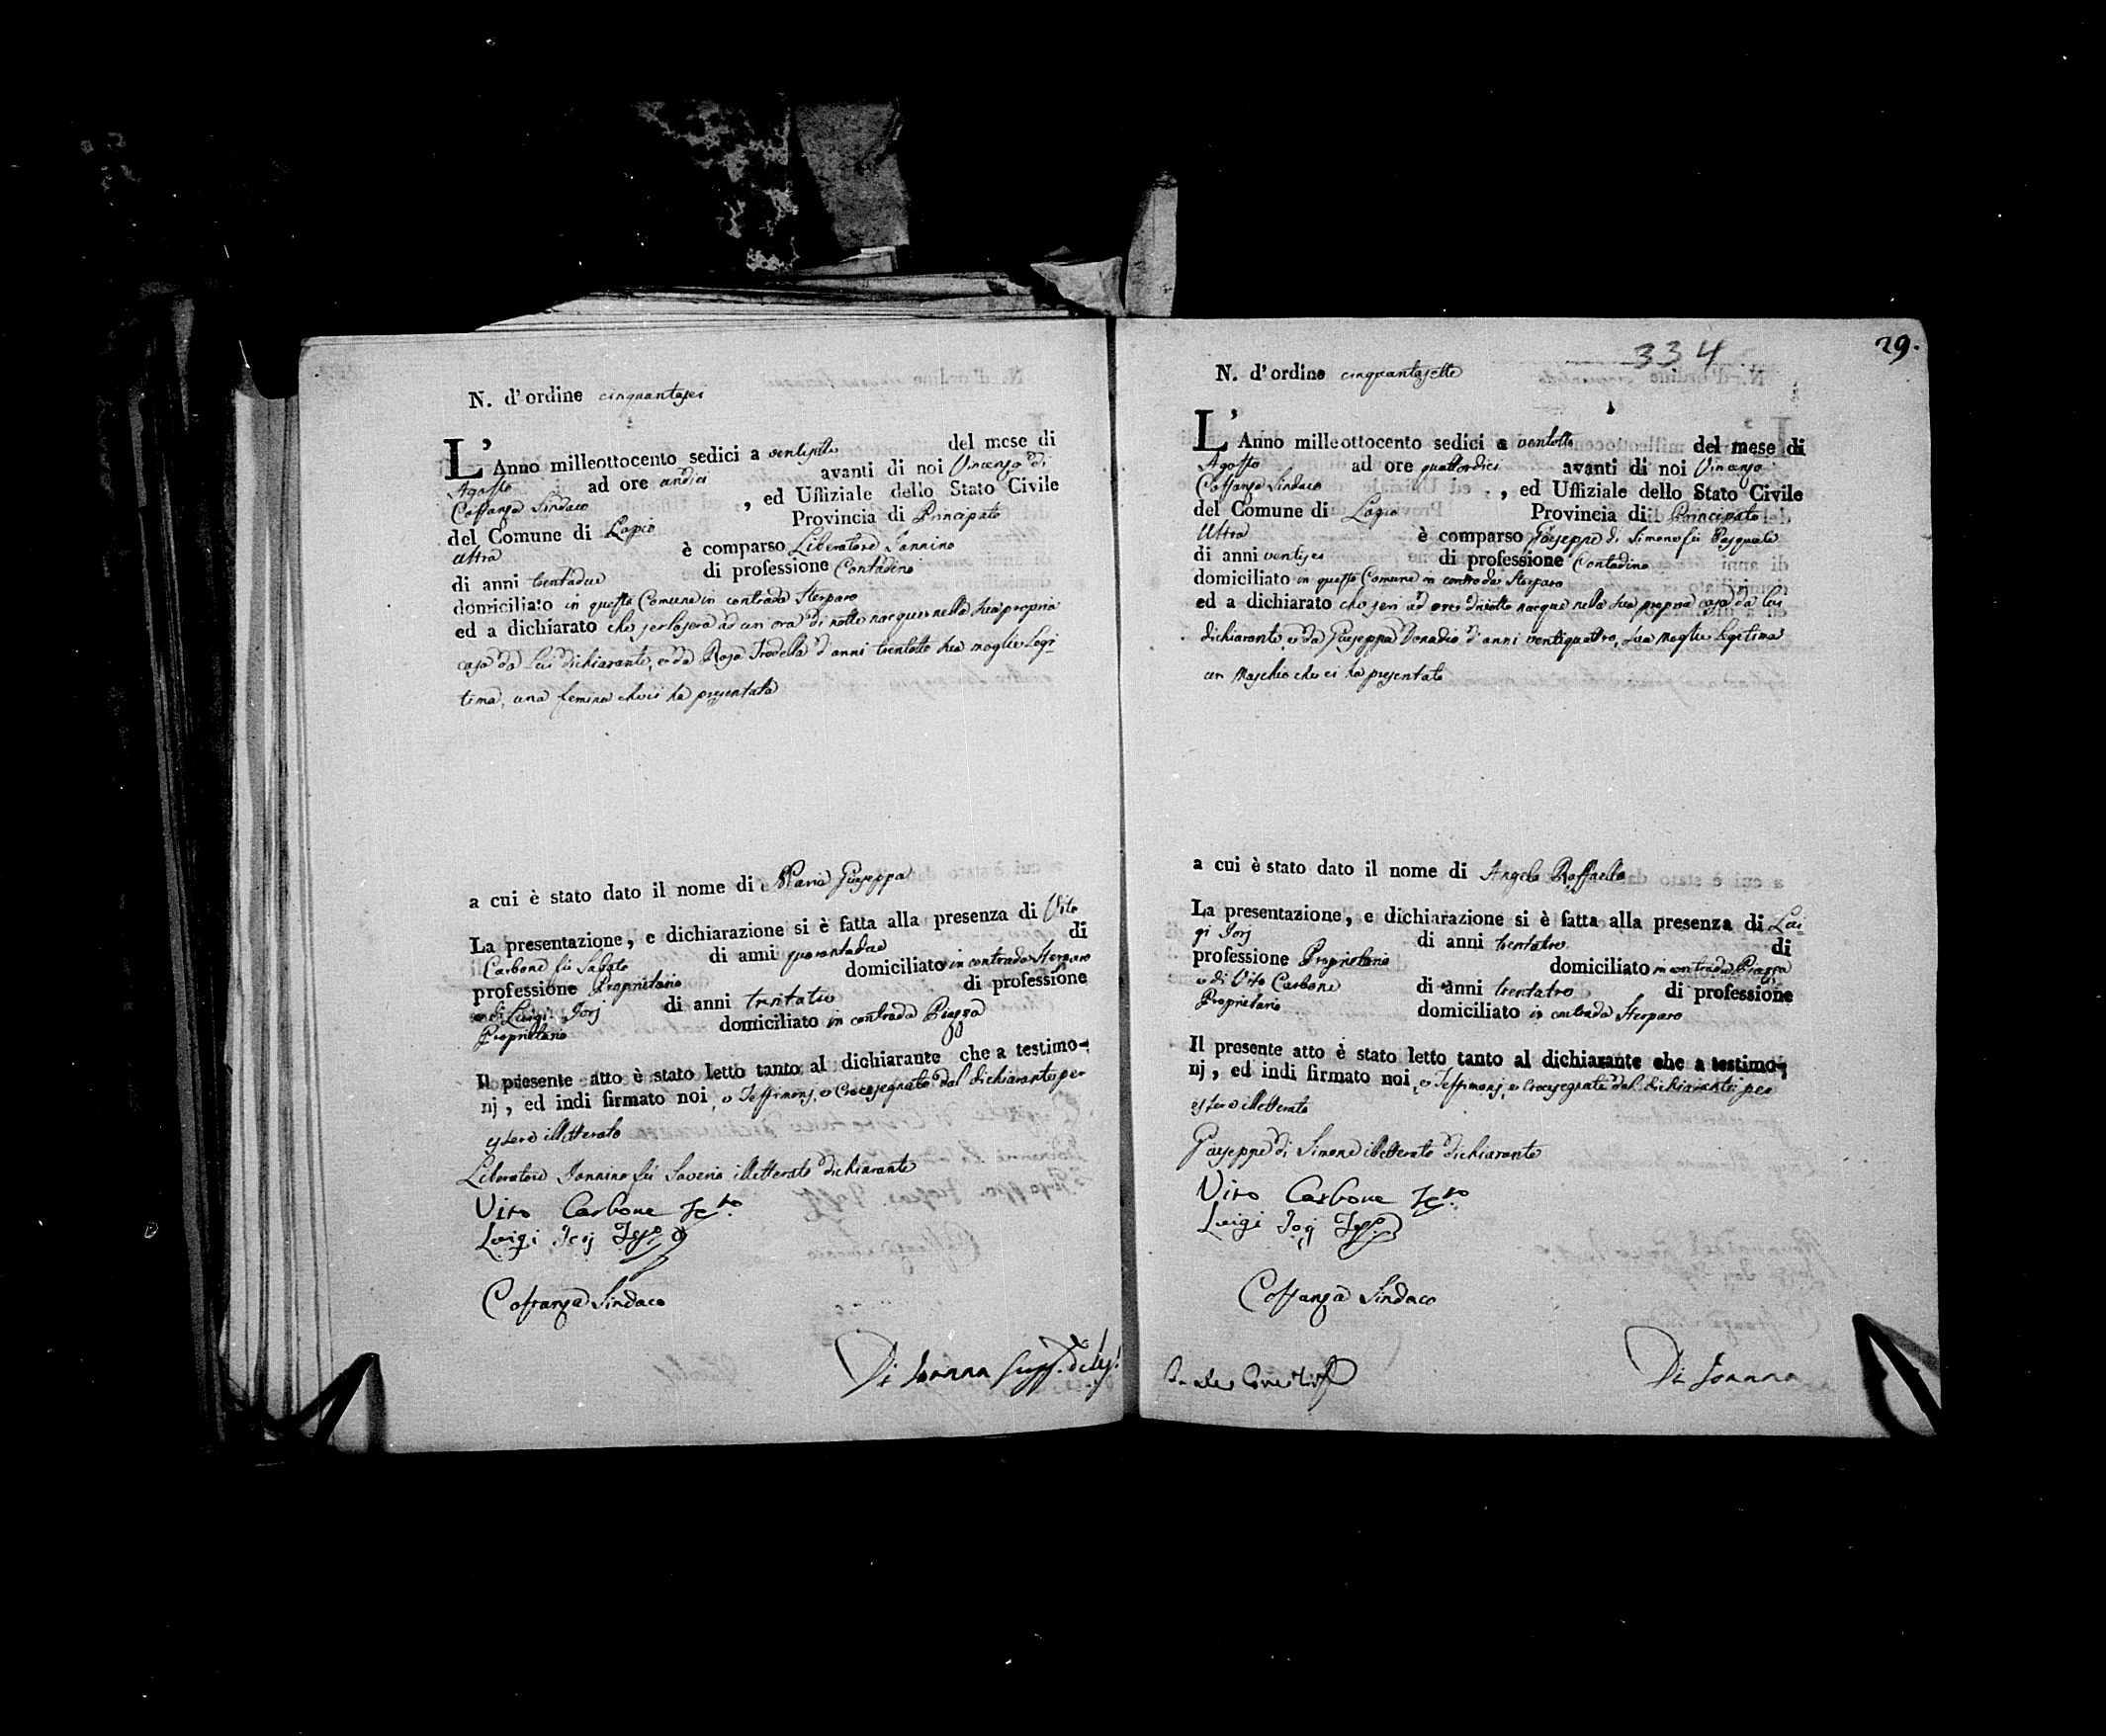 N. d'ordine cinquantasei
L'Anno milleottocento sedici a ventisette del mese di
Agosto ad ore undici avanti di noi Vincenzo di
Coffanza Sindaco , ed Uffiziale dello Stato Civile
del Comune di Lapio Provincia di Principato
Ultra è comparso Liberatore Iannino
di anni trentadue di professione Contadino
domiciliato in questo Comune in contrada Sterparo
ed a dichiarato che jerlasera ad un ora di notte nacque nella sua propria
casa da Lui dichiarante, e da Rosa d'anni trentotto sua moglie Legi-
tima, una femina che ci ha presentata
a cui è stato dato il nome di Maria Giuseppa
La presentazione, e dichiarazione si è fatta alla presenza di Vito
Carbone fu Sabato di anni quarantadue di
professione Proprietario domiciliato in contrada Sterparo
e di Luigi Iorj di anni trentatre di professione
Proprietario domiciliato in contrada Piazza
Il presente atto è stato letto tanto al dichiarante che a testimo-
nj, ed indi firmato noi, e Testimonj, e Crocesegnato dal dichiarante per
essere illetterato
Liberatore Iannino fu Saverio illetterato dichiarante
Vito Carbone
Luigi Iorj
Coffanza Sindaco
Di Ioanna
334
29.
N. d'ordine cinquantasette
L'Anno milleottocento sedici a ventotto del mese di
Agosto ad ore quattordici avanti di noi Vincenzo
Coffanza Sindaco , ed Uffiziale dello Stato Civile
del Comune di Lapio Provincia di Principato
Ultra è comparso Giuseppe di Simone fu Pasquale
di anni ventisei di professione Contadino
domiciliato in questo Comune in contrada Sterparo
ed a dichiarato che jeri ad ore dieciotto nacque nella sua propria casa da lui
dichiarante, e da Giuseppa Donadio d'anni ventiquattro, sua moglie Legitima
un Maschio che ci ha presentato
a cui è stato dato il nome di Angelo Raffaello
La presentazione, e dichiarazione si è fatta alla presenza di Lui-
gi Iorj di anni trentatre di
professione Proprietario domiciliato in contrada Piazza
e di Vito Carbone di anni trentatre di professione
Proprietario domiciliato in contrada Sterparo
Il presente atto è stato letto tanto al dichiarante che a testimo-
nj, ed indi firmato noi, e Testimonj, e Crocesegnato dal dichiarante per
essere illetterato
Giuseppe di Simone illetterato dichiarante
Vito Carbone
Luigi Iorj
Coffanza Sindaco
Di Ioanna